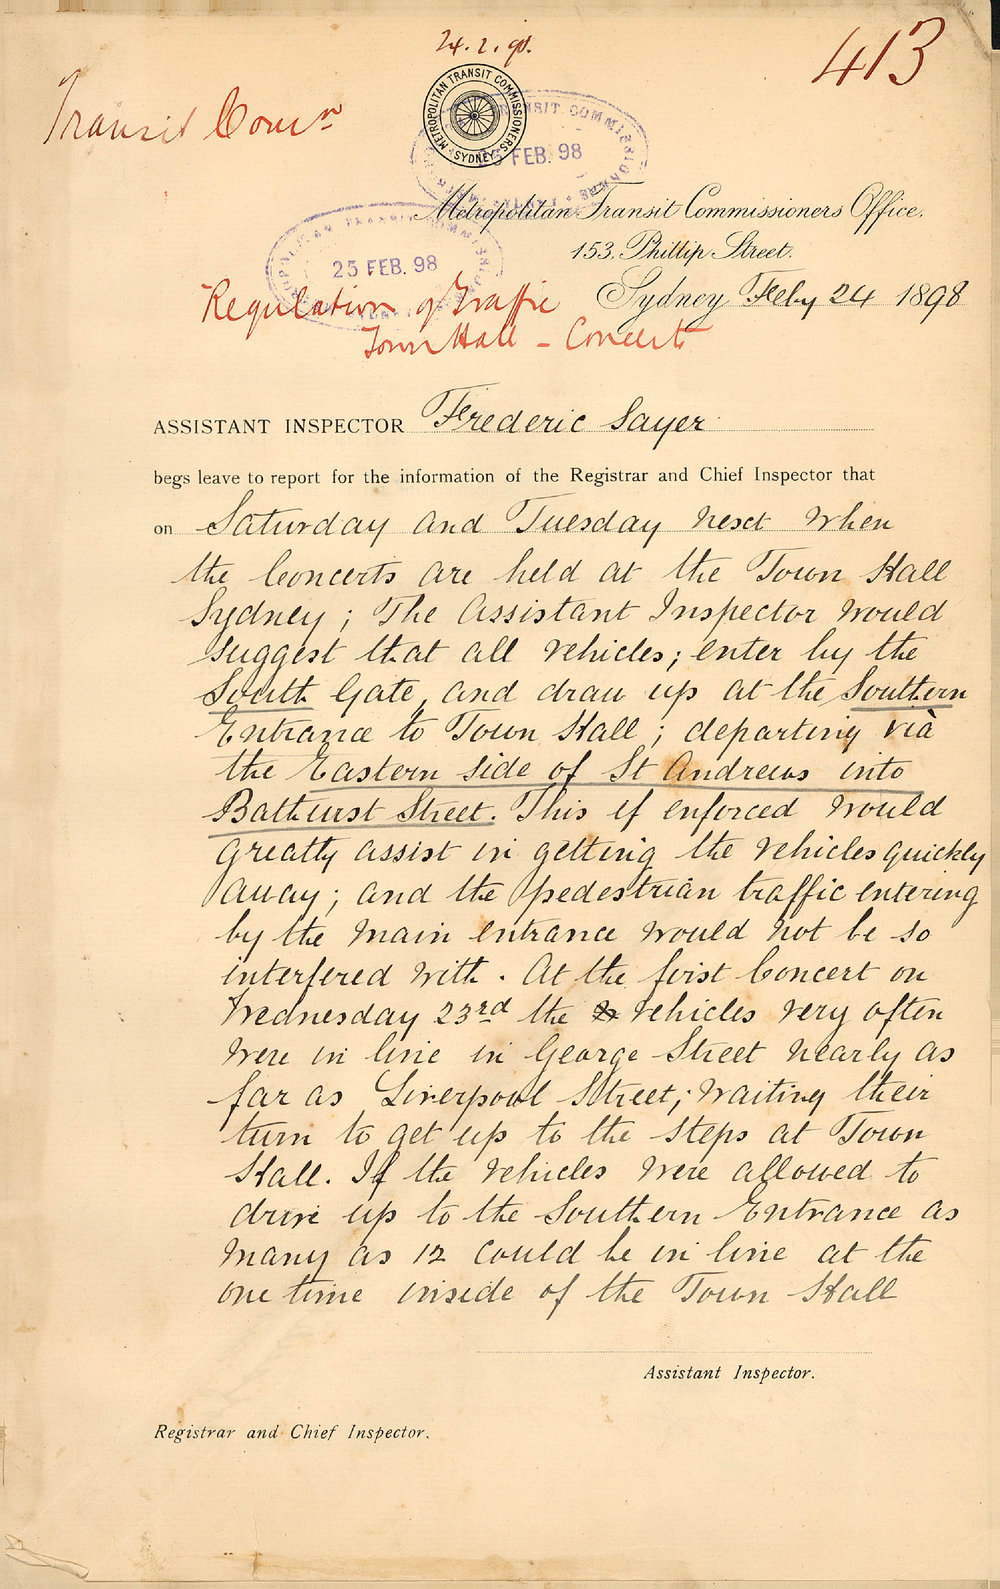 24.2.98.
413
Transit Comrs
METROPOLITAN TRANSIT COMMISSIONERS
SYDNEY
25 FEB. 98
Metropolitan Transit Commissioners Office,
153, Phillip Street.
25 FEB. 98
Sydney Feby 24 1898
Regulation of Traffic
Town Hall - Concerts
ASSISTANT INSPECTOR Frederic Sayer
begs leave to report for the information of the Registrar and Chief Inspector that
on Saturday and Tuesday next when
the Concerts are held at the Town Hall
Sydney; The Assistant Inspector would
suggest that all vehicles; enter by the
South Gate, and draw up at the Southern
Entrance to Town Hall; departing vià
the Eastern side of St Andrews into
Bathurst Street. This if enforced would
greatly assist in getting the vehicles quickly
away; and the pedestrian traffic entering
by the main entrance would not be so
interfered with. At the first Concert on
Wednesday 23rd the vehicles very often
were in line in George Street nearly as
far as Liverpool Street; waiting their
turn to get up to the steps at Town
Hall. If the vehicles were allowed to
drive up to the Southern Entrance as
many as 12 could be in line at the
one time inside of the Town Hall
Assistant Inspector.
Registrar and Chief Inspector.